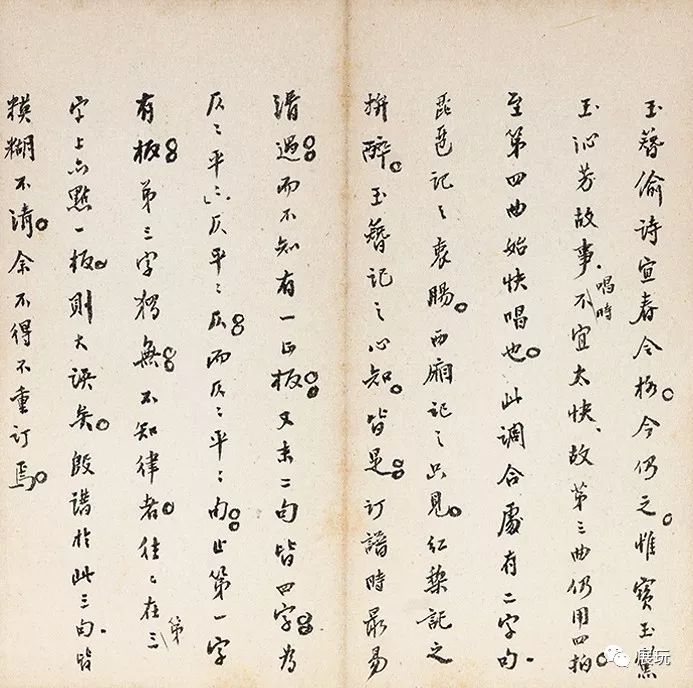 玉簪偷诗宜春令格。今仍之。惟宝玉黛
玉沁芳故事、唱時不宜太快、故第三曲仍用四拍。
至第四曲始快唱也。此調合處有二字句.
琵琶記之衷腸。西廂記之只見。红梨記之
拚醉。玉簪記之心知。皆是。订譜時最易
滑過。而不知有一正板。又末二句皆四字。為
仄〻平〻。仄平〻仄。而仄〻平〻句。止第一字
有板。第三字獨無。不知律者。往〻在第三
字上亦點一板。則大误矣。殷譜於此三句.皆
模糊不清。余不得不重订焉。
展玩